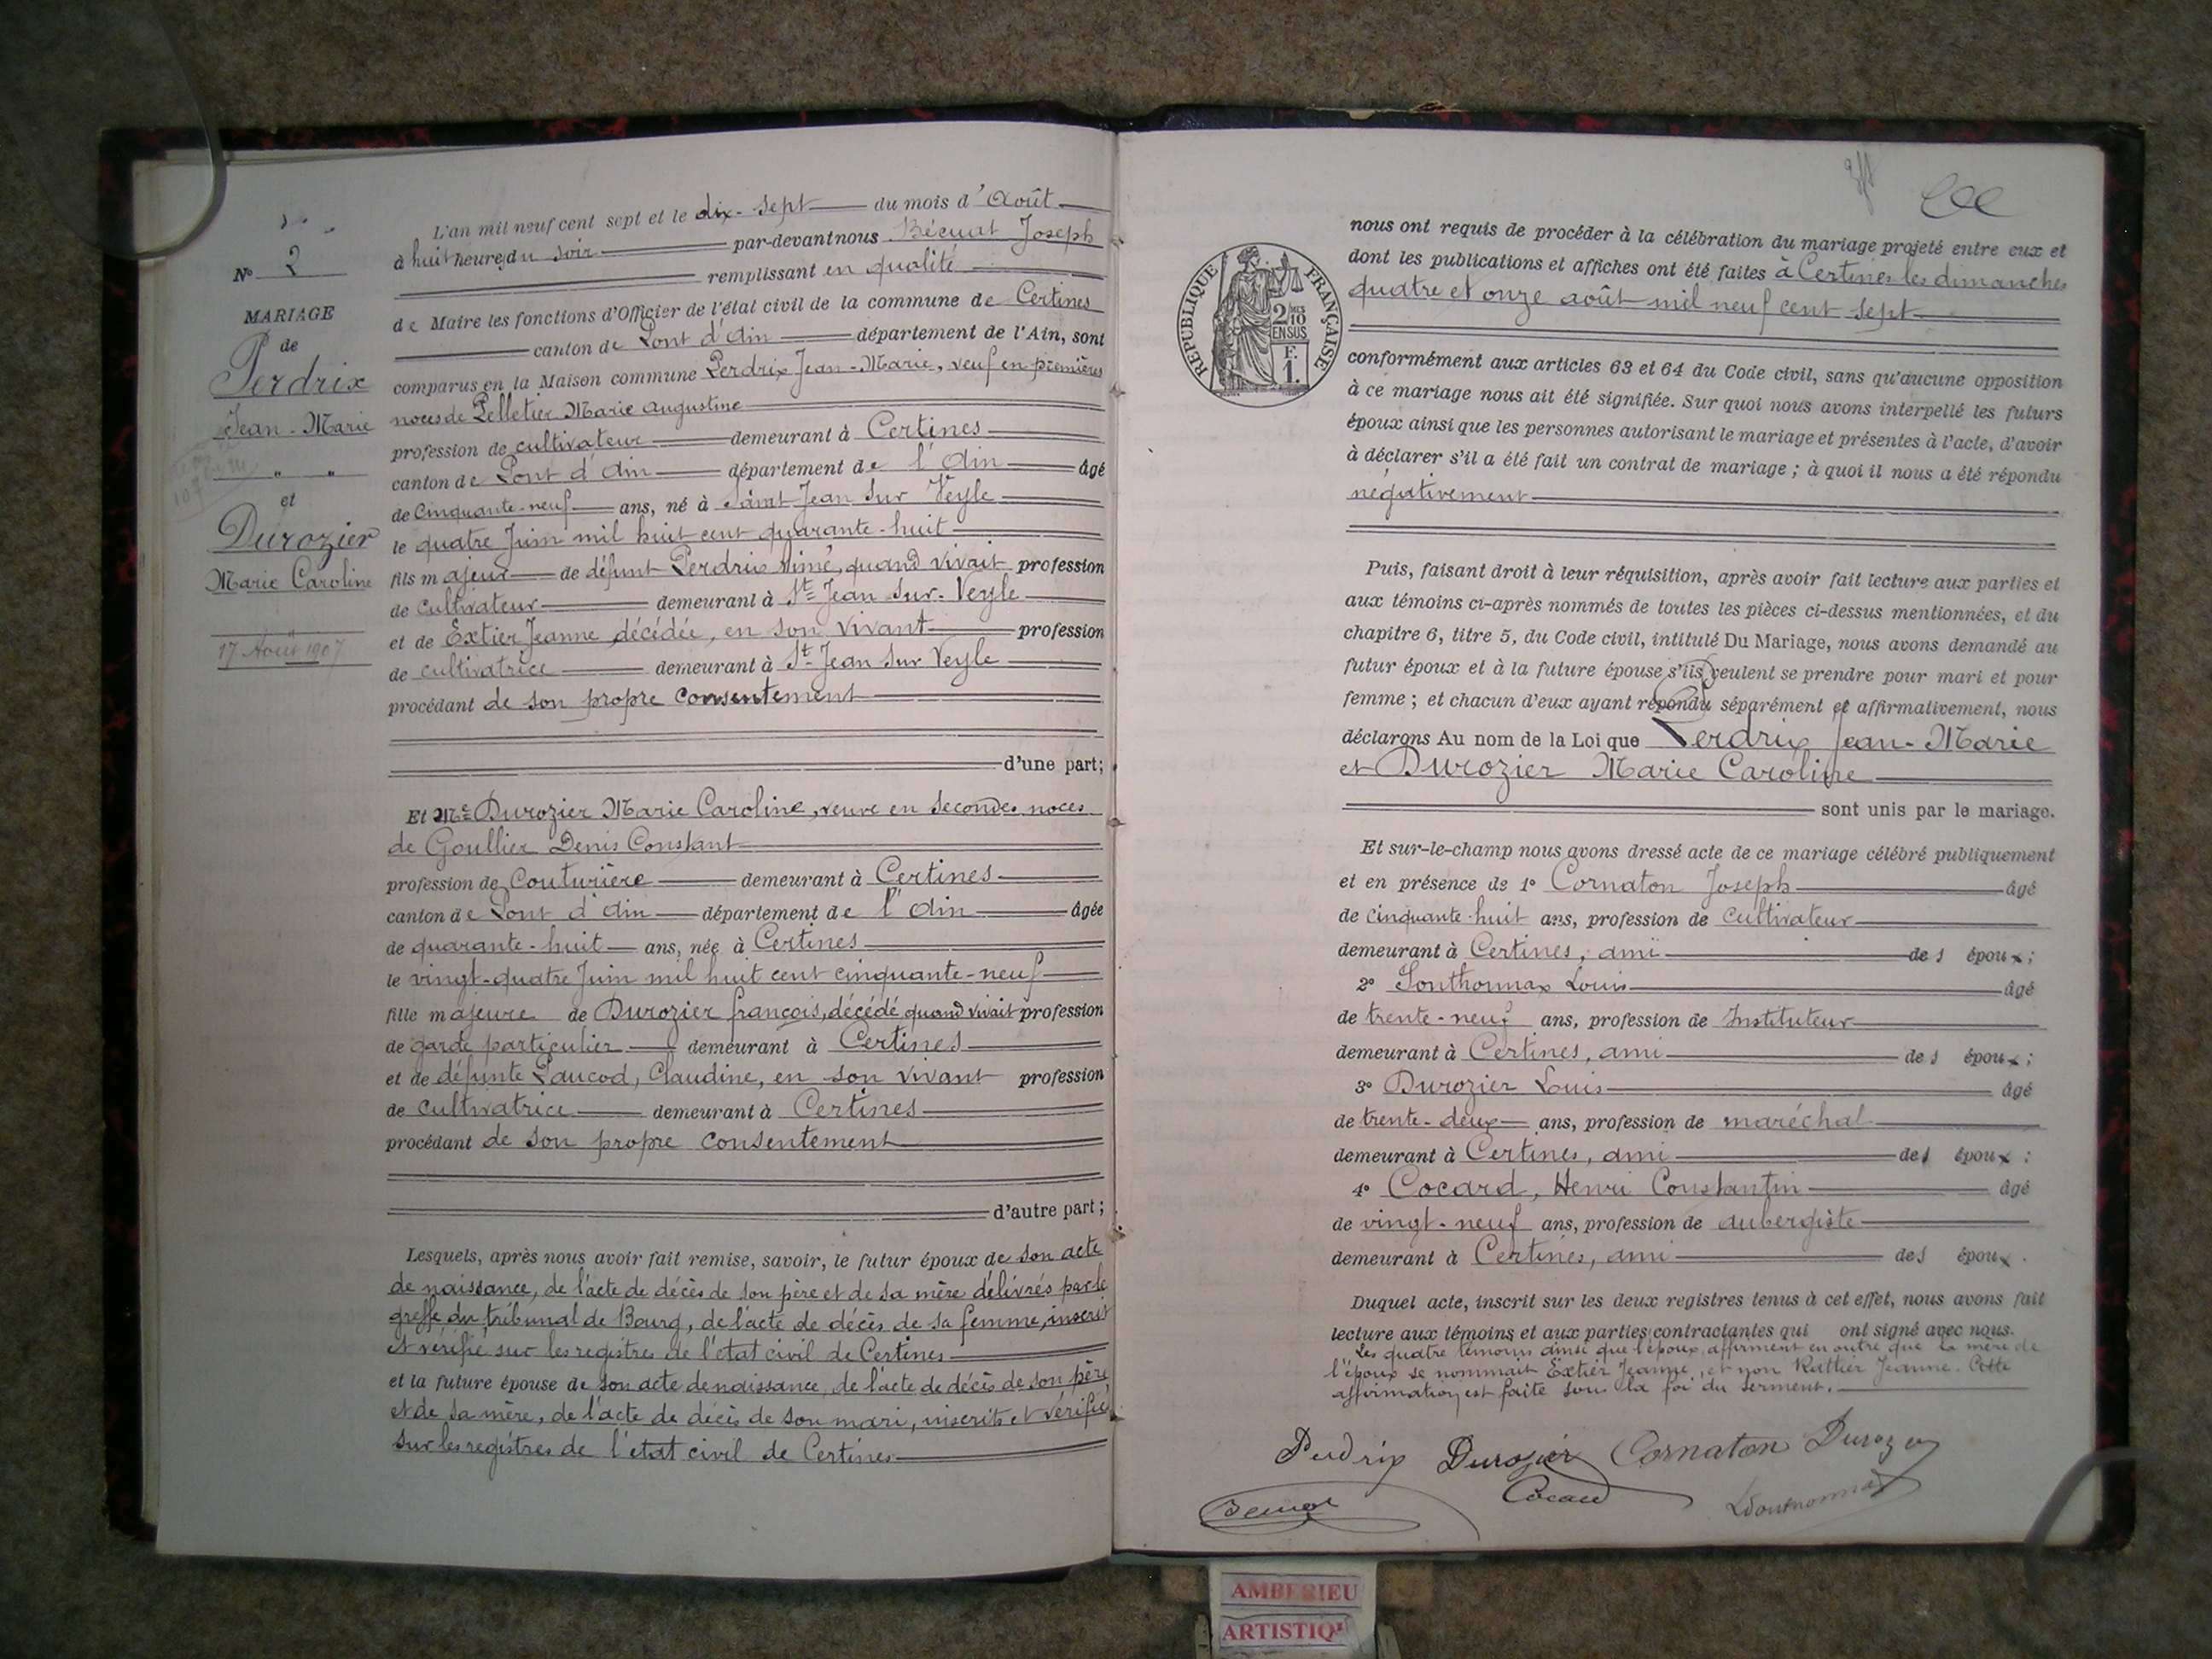 N° 2
MARIAGE
de
Perdrix
Jean-Marie
" "
et
Durozier
Marie Caroline
17 Août 1907
L'an mil neuf cent sept et le dix-sept du mois d'Août
à huit heures du soir par-devant nous Bécuat Joseph
remplissant en qualité
de Maire les fonctions d'Officier de l'état civil de la commune de Certines
canton de Pont d'Ain département de l'Ain, sont
comparus en la Maison commune Perdrix Jean-Marie, veuf en premières
noces de Pelletier Marie Augustine
profession de cultivateur demeurant à Certines
canton de Pont d'Ain département de l'Ain âgé
de cinquante-neuf ans, né à Saint Jean sur Veyle
le quatre Juin mil huit cent quarante-huit
fils majeur de défunt Perdrix Aimé, quand vivait profession
de cultivateur demeurant à St Jean sur-Veyle
et de Extier Jeanne décédée, en son vivant profession
de cultivatrice demeurant à St Jean sur Veyle
procédant de son propre consentement
d'une part;
Et Me Durozier Marie Caroline, veuve en secondes noces
de Goullier Denis Constant
profession de Couturière demeurant à Certines
canton de Pont d'Ain département de l'Ain âgée
de quarante-huit ans, née à Certines
le vingt-quatre Juin mil huit cent cinquante-neuf
fille majeure de Durozier françois, décédé quand vivait profession
de garde particulier demeurant à Certines
et de défunte Paucod, Claudine, en son vivant profession
de cultivatrice demeurant à Certines
procédant de son propre consentement
d'autre part;
Lesquels, après nous avoir fait remise, savoir, le futur époux de son acte
de naissance, de l'acte de décès de son père et de sa mère délivrés par le
greffe du tribunal de Bourg, de l'acte de décès de sa femme, inscrit
et vérifié sur les registres de l'état civil de Certines
et la future épouse de son acte de naissance, de l'acte de décès de son père
et de sa mère, de l'acte de décès de son mari, inscrits et vérifiés
sur les registres de l'état civil de Certines
RÉPUBLIQUE FRANÇAISE
2/10 EN SUS
F. 1.
nous ont requis de procéder à la célébration du mariage projeté entre eux et
dont les publications et affiches ont été faites à Certines les dimanches
quatre et onze août mil neuf cent sept
conformément aux articles 63 et 64 du Code civil, sans qu'aucune opposition
à ce mariage nous ait été signifiée. Sur quoi nous avons interpellé les futurs
époux ainsi que les personnes autorisant le mariage et présentes à l'acte, d'avoir
à déclarer s'il a été fait un contrat de mariage ; à quoi il nous a été répondu
négativement
Puis, faisant droit à leur réquisition, après avoir fait lecture aux parties et
aux témoins ci-après nommés de toutes les pièces ci-dessus mentionnées, et du
chapitre 6, titre 5, du Code civil, intitulé Du Mariage, nous avons demandé au
futur époux et à la future épouse s'ils veulent se prendre pour mari et pour
femme ; et chacun d'eux ayant répondu séparément et affirmativement, nous
déclarons Au nom de la Loi que Perdrix Jean-Marie
et Durozier Marie Caroline
sont unis par le mariage.
Et sur-le-champ nous avons dressé acte de ce mariage célébré publiquement
et en présence de 1° Cornaton Joseph âgé
de cinquante-huit ans, profession de cultivateur
demeurant à Certines, ami des époux ;
2° Ponthonnax Louis âgé
de trente-neuf ans, profession de Instituteur
demeurant à Certines, ami des époux ;
3° Durozier Louis âgé
de trente-deux ans, profession de maréchal
demeurant à Certines, ami des époux :
4° Cocard, Henri Constantin âgé
de vingt-neuf ans, profession de aubergiste
demeurant à Certines, ami des époux.
Duquel acte, inscrit sur les deux registres tenus à cet effet, nous avons fait
lecture aux témoins et aux parties contractantes qui ont signé avec nous.
Les quatre témoins ainsi que l'époux, affirment en outre que la mère de
l'époux se nommait Extier Jeanne, et non Rattier Jeanne. Cette
affirmation est faite sous la foi du serment.
Perdrix Durozier Cornaton Durozier
Bécuat Cocard LPonthonnax
AMBERIEU
ARTISTIQ